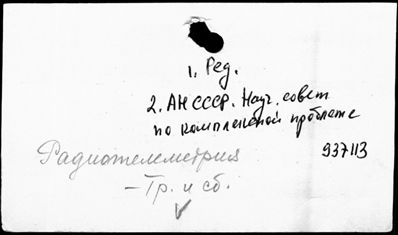 1. Ред.
2. АН СССР. Науч. совет
по комплексной проблеме
Радиотелеметрия 937113
- Тр. и сб.